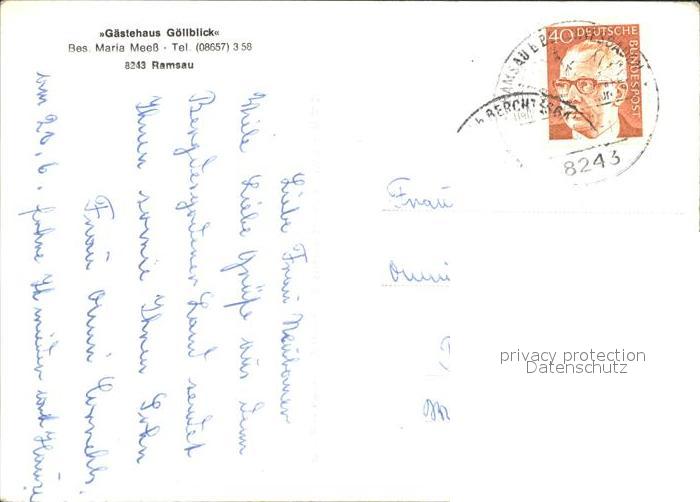 »Gästehaus Göllblick«
Bes. Maria Meeß · Tel. (08657) 3 58
8243 Ramsau
40 DEUTSCHE
BUNDESPOST
RAMSAU b B
b BERCHTESGA
8243
Liebe Frau Neubauer
Viele Liebe Grüße aus dem
Berchtesgadener Land sendet
Ihnen sowie Ihren Sohn
Frau Anni
am 20.6. fahre ich wieder nach Hause
Frau
privacy protection
Datenschutz